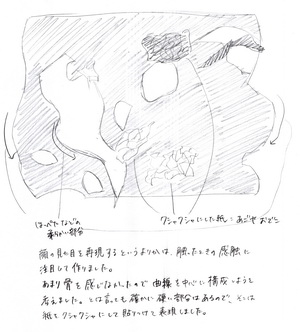 ほっぺたなどの
柔らかい部分
クシャクシャにした紙：あごや おでこ
顔の見た目を再現するというよりかは、触ったときの感触に
注目して作りました。
あまり骨を感じなかったので曲線を中心に構成しようと
考えました。とは言っても確かに硬い部分はあるので、そこは
紙をクシャクシャにして貼りつけて表現しました。